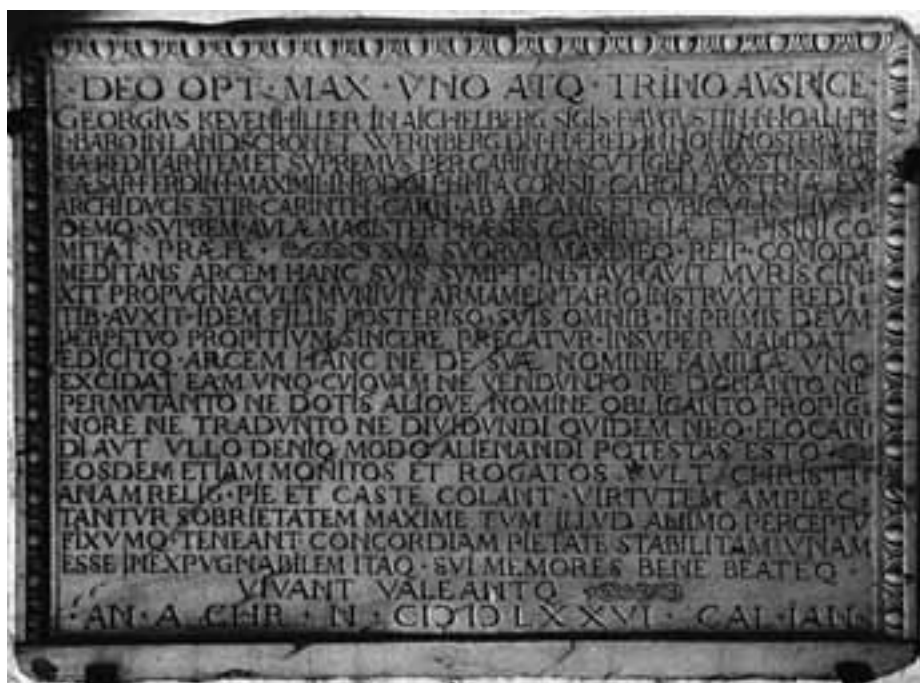 ·DEO OPT·MAX·VNO ATQ·TRINO AVSPICE
GEORGIVS KEVENHILLER IN AICHELBERG SIGIS·F·AVGVSTIN·N·IOAN·PR·
BARO IN LANDSCRON ET WERNBERG DN·
HÆREDITAR ITEM ET SVPREMVS PER CARINTH·SCVTIGER AVGVSTISSIMOR
CÆSAR·FERDIN·I·MAXIMILI· A CONSIL·CAROLI AVSTRIÆ EX
ARCHIDVCIS STIR·CARINTH·CARN·AB ARCANIS ET CVBICVLIS
DEMQ·SVPREM·AVLÆ MAGISTER PRÆSES CARINTHIÆ ET PISINI CO
MITAT·PRÆFE· SVA SVORVM MAXIMEQ·REIP·COMODA
MEDITANS ARCEM HANC SVIS SVMPT·INSTAVRAVIT MVRIS CIN
XIT PROPVGNACVLIS MVNIVIT ARMAMENTARIO INSTRVXIT REDI
TIB·AVXIT·IDEM FILIIS POSTERISQ·SVIS OMNIB·INPRIMIS DEVM
PERPETVO PROPITIVM SINCERE PRECATVR·INSVPER MANDAT
EDICITQ·ARCEM HANC NE DE SVÆ NOMINE FAMILIÆ VNQ
EXCIDAT EAM VNQ·CVIQVAM NE VENDVNTO NE DONANTO NE
PERMVTANTO NE DOTIS ALIOVE NOMINE OBLIGANTO PROPIG
NORE NE TRADVNTO NE DIVIDVNDI QVIDEM NEQ·ELOCAN
DI AVT VLLO DENIQ MODO ALIENANDI POTESTAS ESTO
EOSDEM ETIAM MONITOS ET ROGATOS VVLT CHRISTI
ANAM RELIG·PIE ET CASTE COLANT·VIRTVTEM AMPLEC·
TANTVR SOBRIETATEM MAXIME TVM ILLVD ANIMO PERCEPTV
FIXVMQ·TENEANT CONCORDIAM PIETATE STABILITAM VNAM
ESSE INEXPVGNABILEM ITAQ·SVI MEMORES BENE BEATEQ·
VIVANT VALEANTQ
·AN·A CHR·N·CIƆIƆLXXXVI·CAL·IAN·